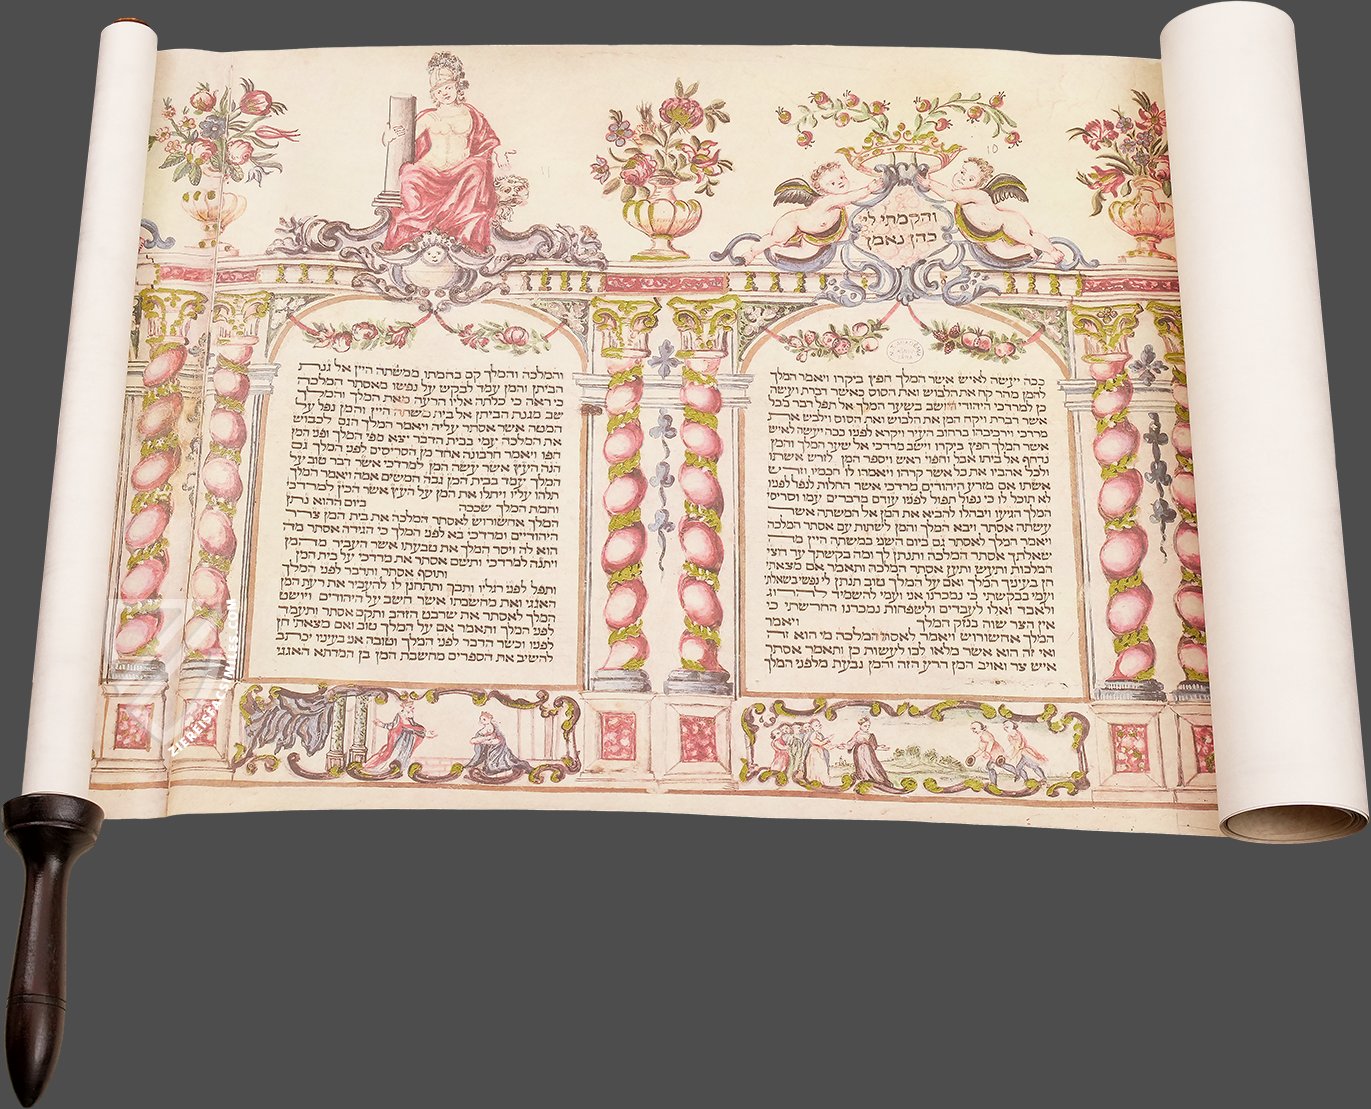 והקמתי לי
כהן נאמן
ככה יעשה לאיש אשר המלך חפץ ביקרו ויאמר המלך
להמן מהר קח את הלבוש ואת הסוס כאשר דברת ועשה
כן למרדכי היהודי היושב בשער המלך אל תפל דבר מכל
אשר דברת ויקח המן את הלבוש ואת הסוס וילבש את
מרדכי וירכיבהו ברחוב העיר ויקרא לפניו ככה יעשה לאיש
אשר המלך חפץ ביקרו וישב מרדכי אל שער המלך והמן
נדחף אל ביתו אבל וחפוי ראש ויספר המן לזרש אשתו
ולכל אהביו את כל אשר קרהו ויאמרו לו חכמיו וזרש
אשתו אם מזרע היהודים מרדכי אשר החלות לנפל לפניו
לא תוכל לו כי נפול תפול לפניו עודם מדברים עמו וסריסי
המלך הגיעו ויבהלו להביא את המן אל המשתה אשר
עשתה אסתר ויבא המלך והמן לשתות עם אסתר המלכה
ויאמר המלך לאסתר גם ביום השני במשתה היין מה
שאלתך אסתר המלכה ותנתן לך ומה בקשתך עד חצי
המלכות ותעש ותען אסתר המלכה ותאמר אם מצאתי
חן בעיניך המלך ואם על המלך טוב תנתן לי נפשי בשאלתי
ועמי בבקשתי כי נמכרנו אני ועמי להשמיד להרוג
ולאבד ואלו לעבדים ולשפחות נמכרנו החרשתי כי
אין הצר שוה בנזק המלך ויאמר
המלך אחשורוש ויאמר לאסתר המלכה מי הוא זה
ואי זה הוא אשר מלאו לבו לעשות כן ותאמר אסתר
איש צר ואויב המן הרע הזה והמן נבעת מלפני המלך
והמלכה והמלך קם בחמתו ממשתה היין אל גנת
הביתן והמן עמד לבקש על נפשו מאסתר המלכה
כי ראה כי כלתה אליו הרעה מאת המלך והמלך
שב מגנת הביתן אל בית משתה היין והמן נפל על
המטה אשר אסתר עליה ויאמר המלך הגם לכבוש
את המלכה עמי בבית הדבר יצא מפי המלך ופני המן
חפו ויאמר חרבונה אחד מן הסריסים לפני המלך גם
הנה העץ אשר עשה המן למרדכי אשר דבר טוב על
המלך עמד בבית המן גבה חמשים אמה ויאמר המלך
תלהו עליו ויתלו את המן על העץ אשר הכין למרדכי
וחמת המלך שככה ביום ההוא נתן
המלך אחשורוש לאסתר המלכה את בית המן צרר
היהודיים ומרדכי בא לפני המלך כי הגידה אסתר מה
הוא לה ויסר המלך את טבעתו אשר העביר מהמן
ויתנה למרדכי ותשם אסתר את מרדכי על בית המן
ותוסף אסתר ותדבר לפני המלך
ותפל לפני רגליו ותבך ותתחנן לו להעביר את רעת המן
האגגי ואת מחשבתו אשר חשב על היהודים ויושט
המלך לאסתר את שרבט הזהב ותקם אסתר ותעמד
לפני המלך ותאמר אם על המלך טוב ואם מצאתי חן
לפניו וכשר הדבר לפני המלך וטובה אני בעיניו יכתב
להשיב את הספרים מחשבת המן בן המדתא האגגי
10
11
ZIEREIS FACSIMILES.COM